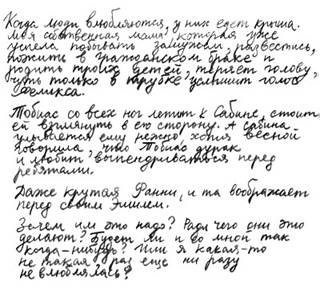 Когда люди влюбляются, у них едет крыша.
Моя собственная мама, которая уже
успела побывать замужем, развестись,
пожить в гражданском браке и
родить троих детей, теряет голову,
чуть только в трубке услышит голос
Феликса.
Тобиас со всех ног летит к Сабине, стоит
ей взглянуть в его сторону. А Сабина
улыбается ему нежно, хотя весной
говорила, что Тобиас дурак
и любит выпендриваться перед
ребятами.
Даже крутая Ранни, и та воображает
перед своим Эмилем.
Зачем им это надо? Ради чего они это
делают? Будет ли и со мной так
когда-нибудь? Или я какая-то
не такая, раз еще ни разу
не влюблялась?